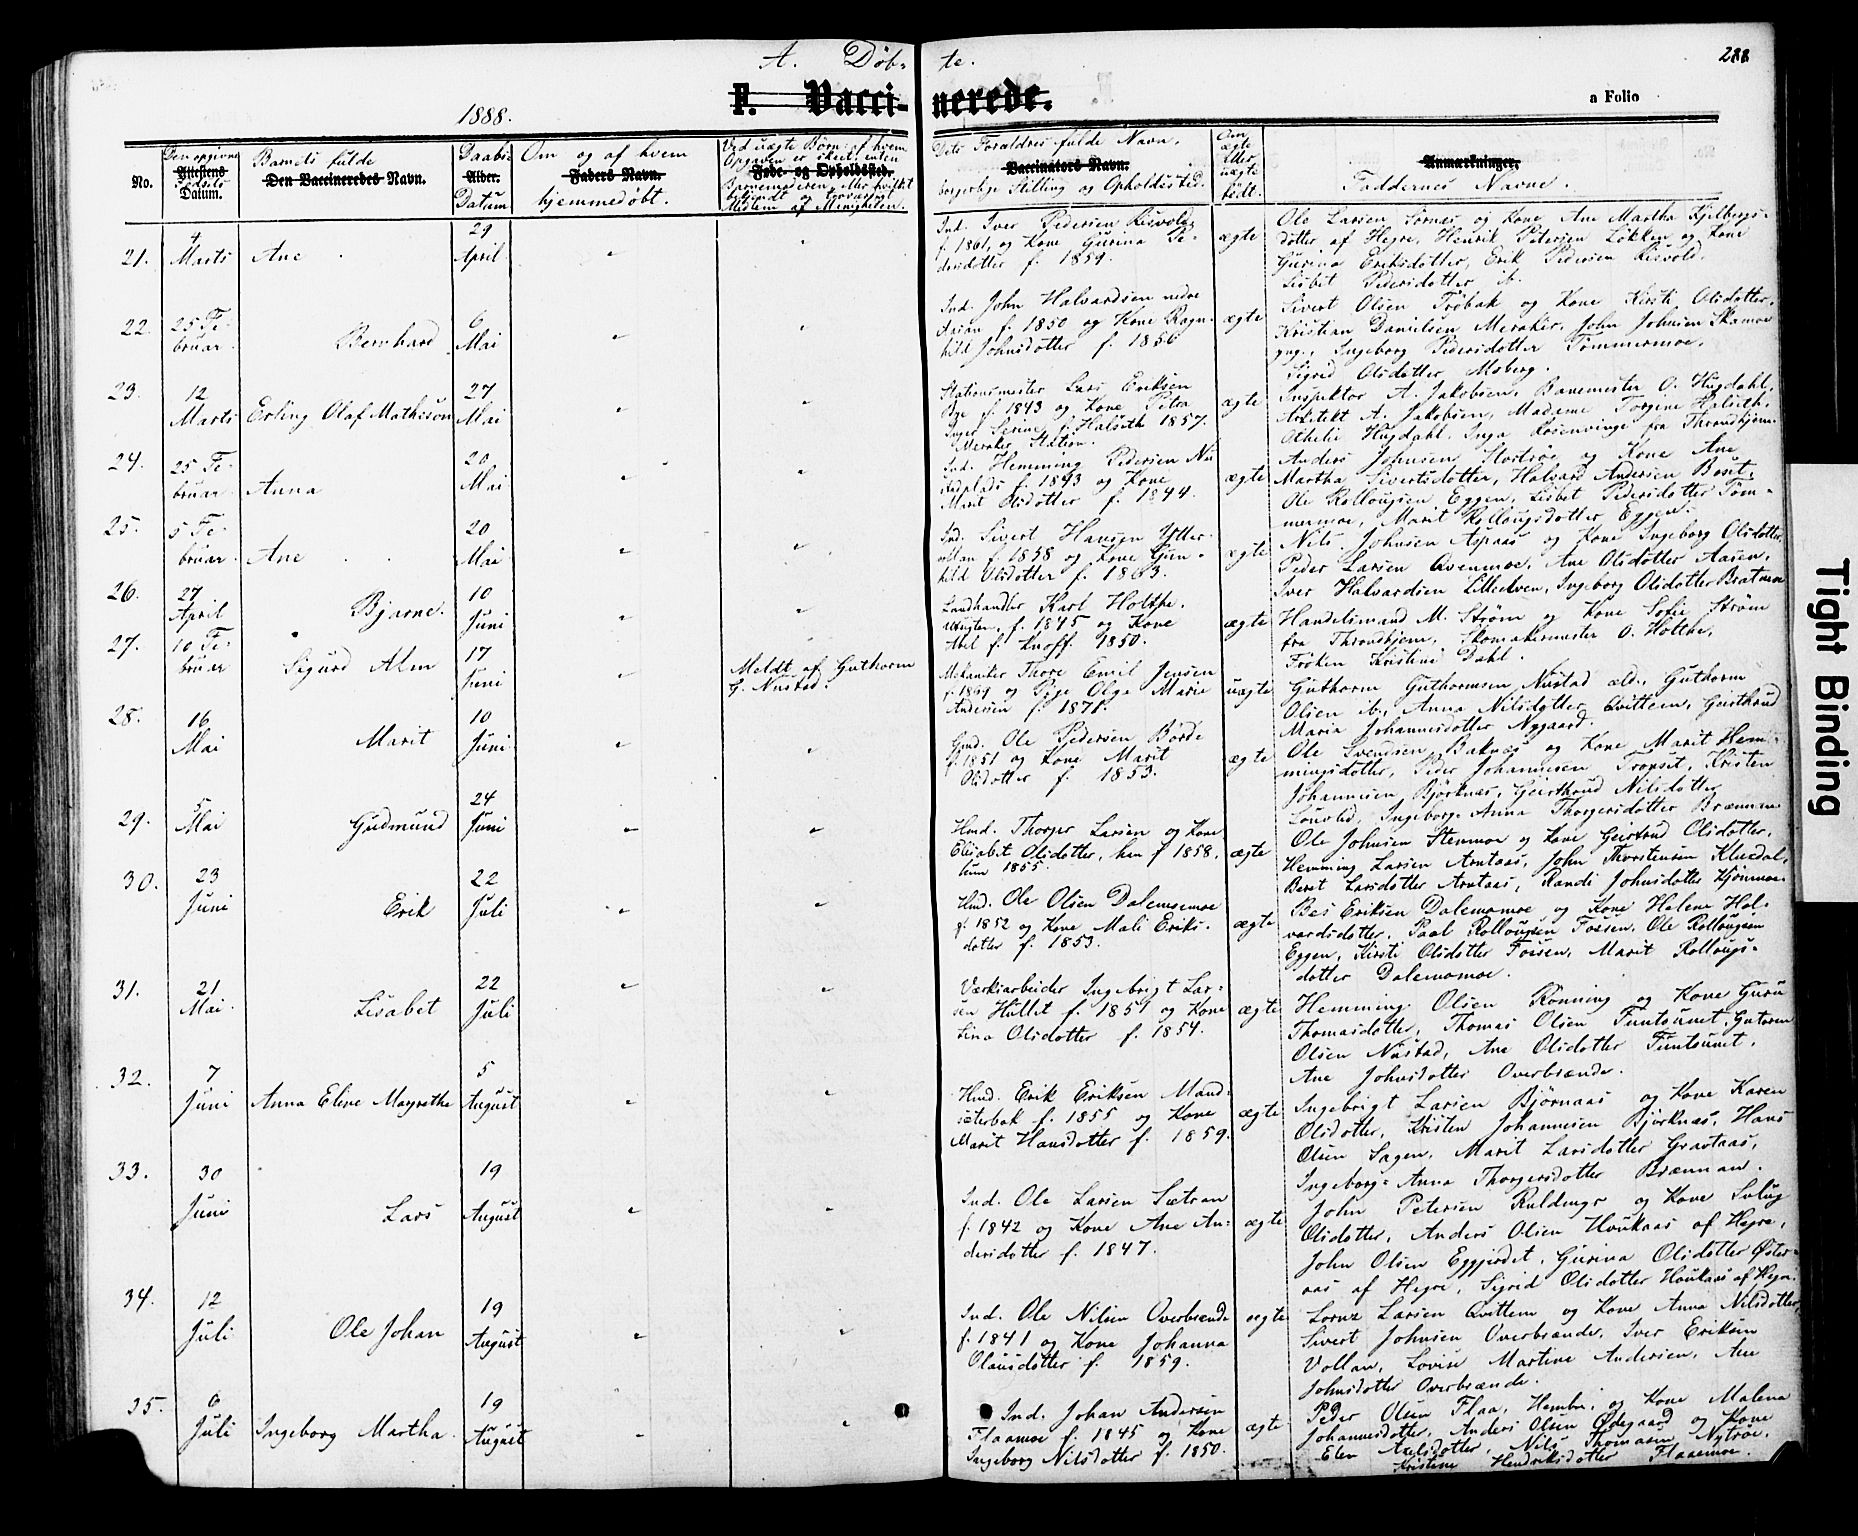 A. Døb- te.
288
F. Vacci- nerede.
1888.
a Folio
No.
Den opgivne
Attestens
Fødsels
Datum.
Barnets fulde
Den Vaccineredes Navn.
Daabs
Alder.
Datum
Om og af hvem
Faders Navn.
hjemmedøbt.
Ved uægte Børn: af hvem
Opgaven er skeet, enten
Føde- og Opholdssted.
Barnemoderen, eller hvilket
bekjendt og troværdigt
Medlem af Menigheden.
Dets Forældres fulde Navn,
Vaccinators Navn.
borgerlige Stilling og Opholdssted.
Om
ægte
eller
uægte
født.
Anmærkninger.
Faddernes Navne.
21.
4
Marts
Ane
29
April
Ind. Iver Pedersen Risvold
f. 1861, og Kone Gurina Pe-
dersdotter f. 1859.
ægte
Ole Larsen Sornæs og Kone Ane Martha Kjelbergs-
dotter af Hegre, Henrik Petersen Løkken og Kone
Gurina Eriksdotter, Erik Pedersen Risvold,
Lisbet Pedersdotter ib.
22.
25 Fe-
bruar.
Bernhard
6
Mai
Ind. John Halvardsen nedre
f. 1850 og Kone Ragn-
hild Johnsdotter f. 1856
ægte
Sivert Olsen Frøbak og Kone Kirsti Olsdotter,
Kristian Danielsen Meraker, John Johnsen Skamoe
gug., Ingeborg Pedersdotter Tømmermoe,
Sigrid Olsdotter Moberg.
23.
12
Marts
Erling Olaf Mathison
27
Mai
Stationsmester Lars Eriksen
Bye f. 1843 og Kone Petra
Inger Serine f. Halseth 1857.
Meraker Station.
ægte
Inspektor A. Jakobsen, Banemester O. Hugdahl,
Arkitekt A. Jakobsen, Madame Torgine Halseth,
Othelie Hugdahl, Inga Rosenvinge fra Throndhjem.
24.
25 Fe-
bruar.
Anna
20
Mai
Ind. Hemming Pedersen Nu
stadplads f. 1843 og Kone
Marit Olsdotter f. 1844.
ægte
Anders Johnsen Stortrøe og Kone Ane
Martha Sivertsdotter, Halvard Andersen Beset,
Ole Rollougsen Eggen, Lisbet Pedersdotter Tøm-
mermoe, Marit Rollougsdotter Eggen.
25.
5 Fe-
bruar.
Ane
20
Mai
Ind. Sivert Hansen Ytter-
vollan f. 1858 og Kone Gun-
hild Olsdotter f. 1863.
ægte
Nils Johnsen Aspaas og Kone Ingeborg Olsdotter,
Peder Larsen Qvenmoe, Ane Olsdotter Aasen,
Iver Halvardsen Lilleelven, Ingeborg Olsdotter Bratmoe
26.
27
April
Bjarne.
10
Juni
Landhandler Karl Holthe.
f. 1845 og Kone
Abel f. Knoff. 1850.
ægte
Handelsmand M. Strøm og Kone Sofie Strøm
fra Throndhjem, Skomakermester O. Holthe,
Frøken Kristine Dahl.
27.
10 Fe-
bruar
Sigurd Alm
17
Juni
Meldt af Guthorm
G. Nustad.
Mekaniker Thore Emil Jensen
f. 1869 og Pige Olga Marie
Andersen f. 1871.
uægte
Guthorm Guthormsen Nustad æld., Guthorm
Olsen ib., Anna Nilsdotter Qvittem, Geirthrud
Maria Johannesdotter Nygaard.
28.
16
Mai
Marit
10
Juni
Gmd. Ole Pedersen Borde
f. 1851 og Kone Marit
Olsdotter f. 1853.
ægte
Ole Svendsen Baknæs og Kone Marit Hem-
mingsdotter, Peder Johannesen Tronset, Kristen
Johannesen Bjørknæs, Geirthrud Nilsdotter
Ingeborg-Anna Thorgersdotter Brænman
29.
5
Mai
Gudmund
24
Juni
Hmd. Thorger Larsen og Kone
Elisabet Olsdotter, han f 1858,
hun 1855.
ægte
Ole Johnsen Stenmoe og Kone Geirtrud Olsdotter,
Hemming Larsen Arntaas, John Thorstensen Kluxdal,
Beret Larsdotter Arntaas, Randi Johnsdotter Kjønmoe.
30.
23
Juni
Erik
22
Juli
Hmd. Ole Olsen Dalemsemoe
f. 1852 og Kone Mali Eriks-
dotter f. 1853.
ægte
Bes Eriksen Dalemomoe og Kone Helene Hal-
vardsdotter, Paal Rollougsen Fossen, Ole Rollougsen
Eggen, Kirsti Olsdotter Fossen, Marit Rollougs-
dotter Dalemomoe.
31.
21
Mai.
Lisabet
22
Juli
Værksarbeider Ingebrigt Lar-
sen Hullet f. 1851 og Kone
Lina Olsdotter f. 1854.
ægte
Hemming Olsen Rønning og Kone Guru
Thomasdotter, Thomas Olsen Funtsunet, Gutorm
Olsen Nustad, Ane Olsdotter Funtsunet,
Ane Johnsdotter Overbrænde.
32.
7
Juni
Anna Eline Magrethe
5
August
Hmd. Erik Eriksen Mand-
sæterbak f. 1855 og Kone
Marit Hansdotter f. 1859.
ægte
Ingebrigt Larsen Bjørnaas og Kone Karen
Olsdotter, Kristen Johannesen Bjørknæs, Hans
Olsen Sagen, Marit Larsdotter Gravaas,
Ingeborg-Anna Thorgersdotter Brænman.
33.
30
Juni
Lars
19
August
Ind. Ole Larsen Sætran
f. 1842 og Kone Ane An-
dersdotter f. 1847.
ægte
John Petersen Kuldings og Kone Solug
Olsdotter, Anders Olsen Houkaas af Hegre,
John Olsen Eggjardet, Gurina Olsdotter Øster-
aas af Hegre, Sigrid Olsdotter Houkaas af Hegre.
34.
12
Juli
Ole Johan
19
August
Ind. Ole Nilsen Overbrænde
f. 1841 og Kone Johanna
Olausdotter f. 1859.
ægte
Lornz Larsen Qvittem og Kone Anna Nilsdotter,
Sivert Johnsen Overbrænde, Iver Eriksen
Vollan, Lovise Martine Andersen, Ane
Johnsdotter Overbrænde.
35.
6
Juli
Ingeborg Martha.
19
August
Ind. Johan Andersen
Flaamoe f. 1845 og Kone
Ingeborg Nilsdotter f. 1850.
ægte
Peder Olsen Flaa, Hembre, og Kone Malena
Johannesdotter, Anders Olsen Ødegaard og Kone
Elen Axelsdotter, Nils Thomasen Nytrøe,
Kristine Hendriksdotter Flaaemoe.
Tight Binding